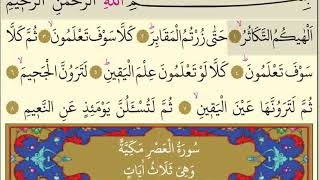 بِسْمِ اللّٰهِ الرَّحْمٰنِ الرَّحِيمِ
اَلْهٰيكُمُ التَّكَاثُرُۙ ﴿١﴾ حَتّٰى زُرْتُمُ الْمَقَابِرَۜ ﴿٢﴾ كَلَّا سَوْفَ تَعْلَمُونَۙ ﴿٣﴾ ثُمَّ كَلَّا
سَوْفَ تَعْلَمُونَۜ ﴿٤﴾ كَلَّا لَوْ تَعْلَمُونَ عِلْمَ الْيَقِينِۜ ﴿٥﴾ لَتَرَوُنَّ الْجَحِيمَۙ ﴿٦﴾
ثُمَّ لَتَرَوُنَّهَا عَيْنَ الْيَقِينِۙ ﴿٧﴾ ثُمَّ لَتُسْـَٔلُنَّ يَوْمَئِذٍ عَنِ النَّعِيمِ ﴿٨﴾
سُورَةُ الْعَصْرِ مَكِّيَّةٌ
وَهِيَ ثَلَاثُ اٰيَاتٍ